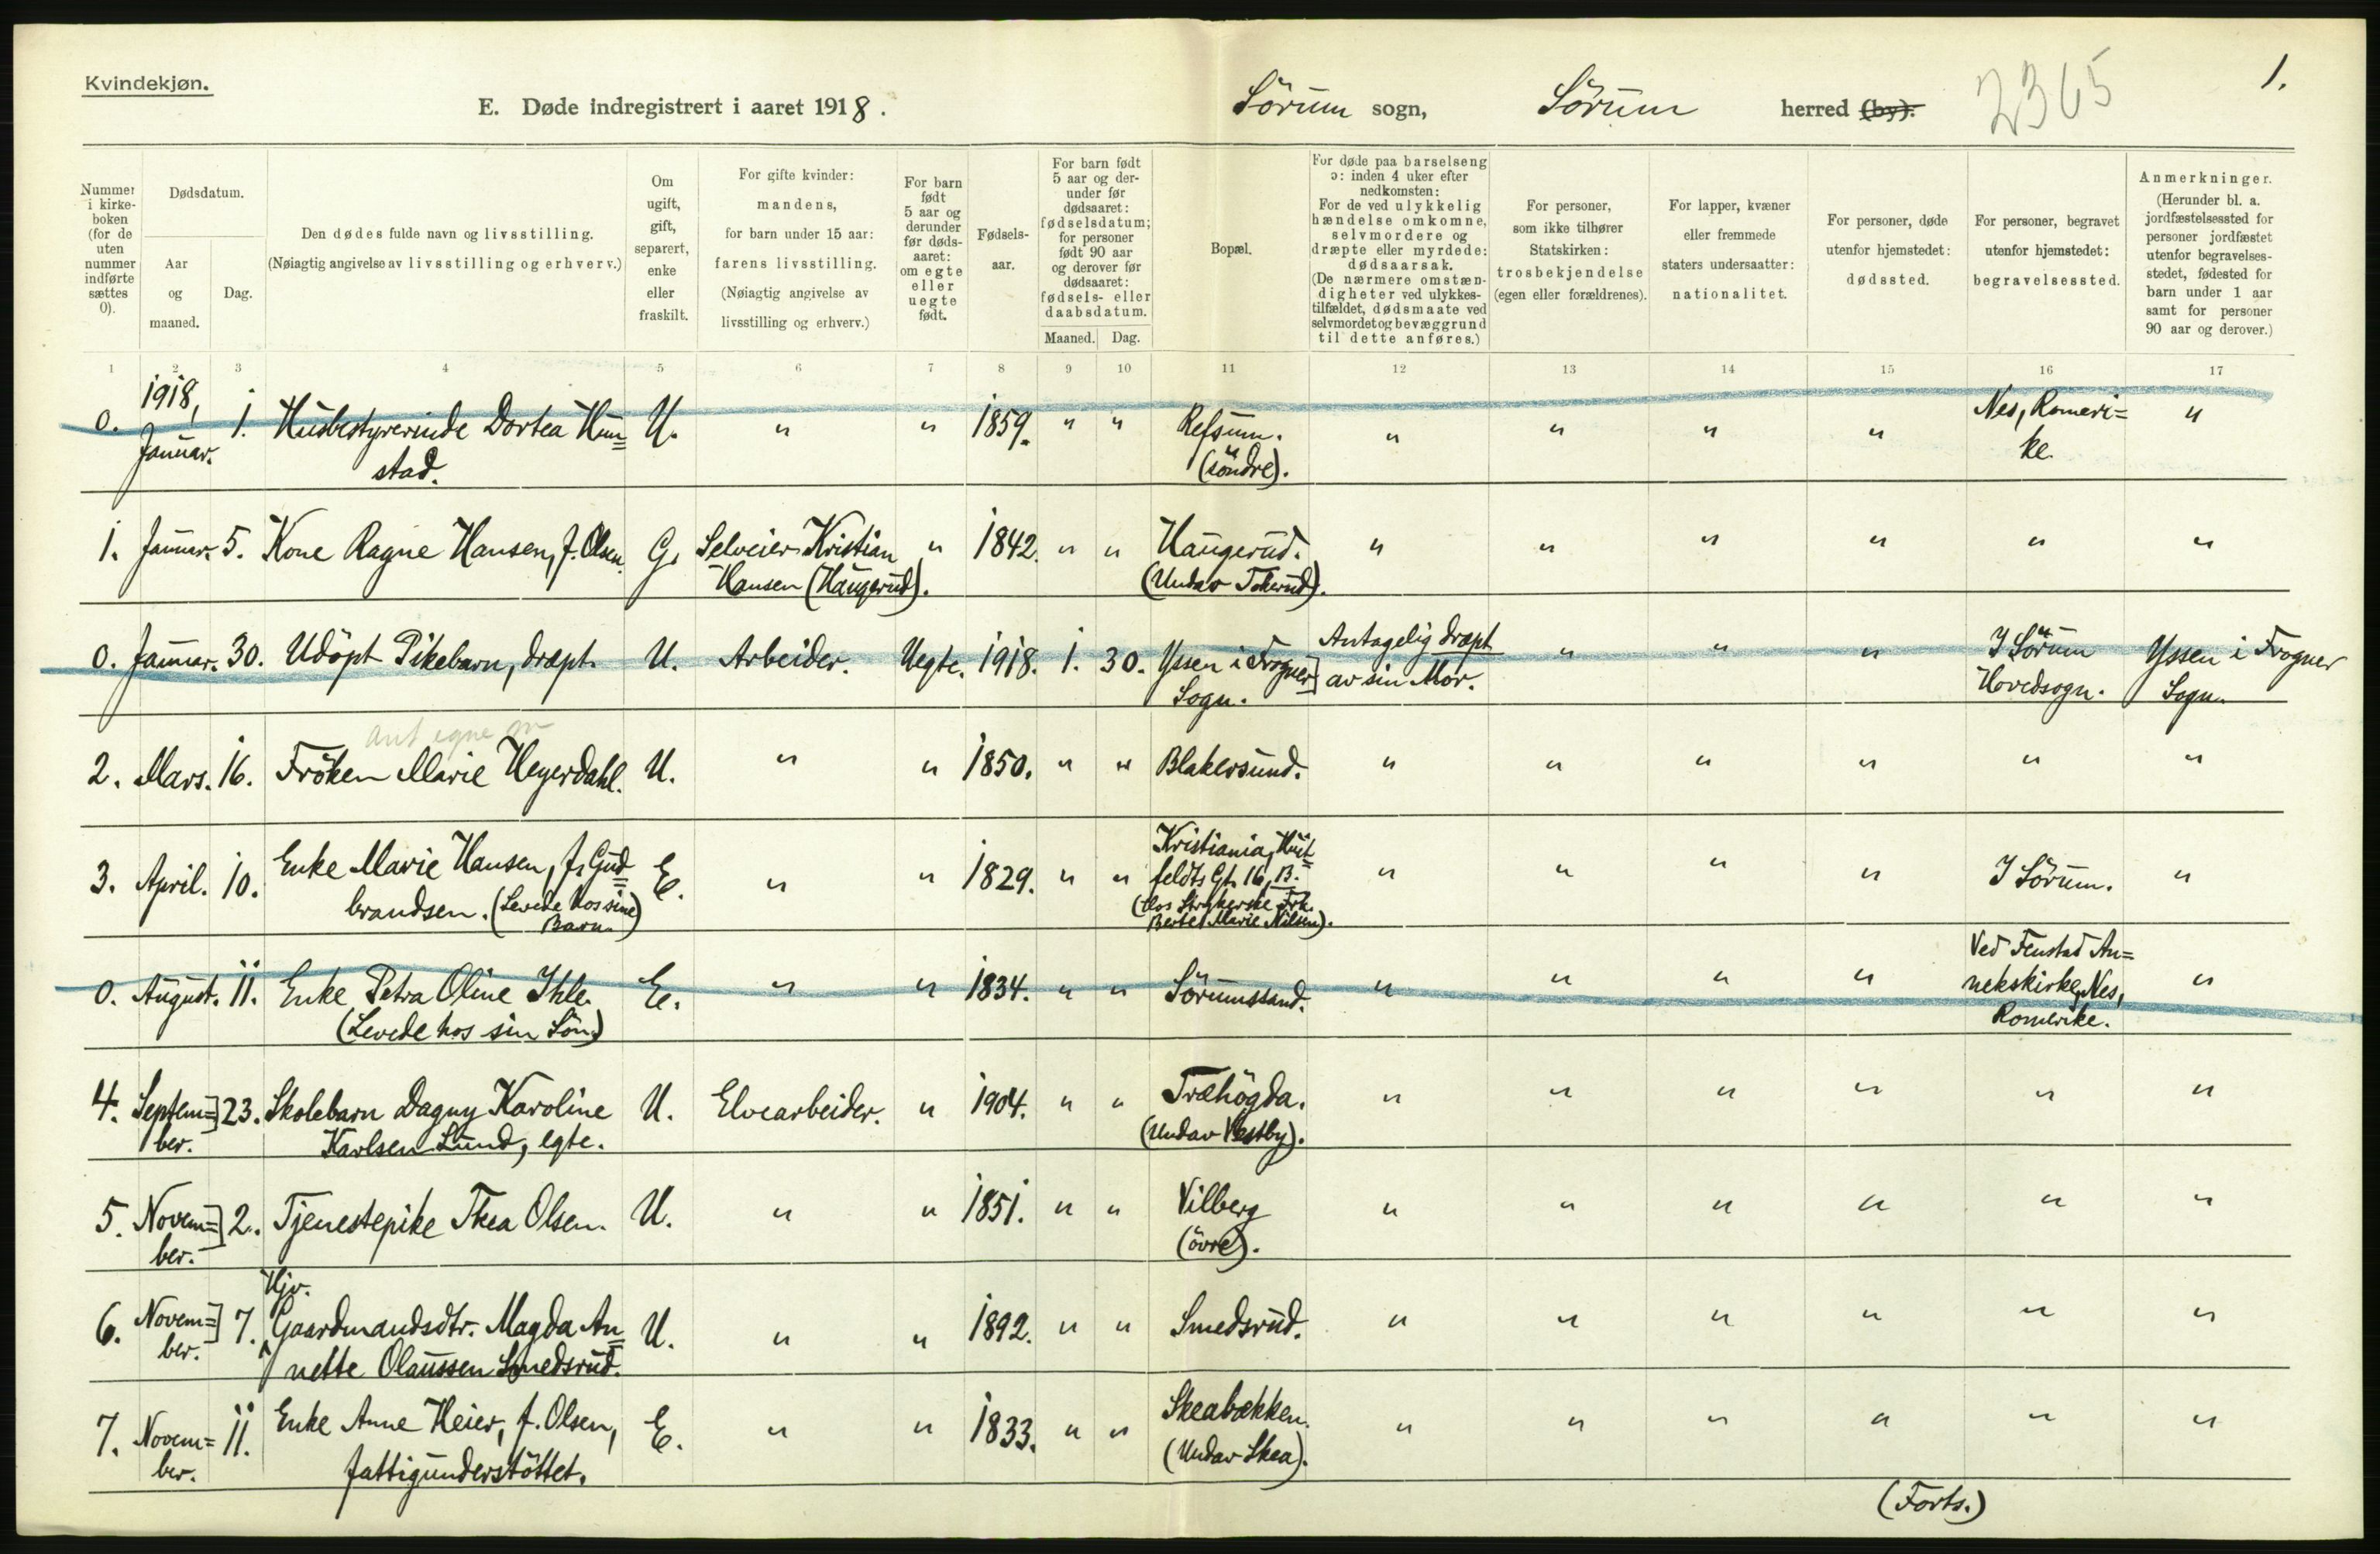 Kvindekjøn.
E. Døde indregistrert i aaret 1918.
Sörum sogn, Sörum herred (by).
2365
1.
Nummer i kirkeboken (for de uten nummer indførte sættes 0).
Dødsdatum.
Aar og maaned.
Dag.
Den dødes fulde navn og livsstilling.
(Nøiagtig angivelse av livsstilling og erhverv.)
Om ugift, gift, separert, enke eller fraskilt.
For gifte kvinder: mandens, for barn under 15 aar: farens livsstilling.
(Nøiagtig angivelse av livsstilling og erhverv.)
For barn født 5 aar og derunder før dødsaaret: om egte eller uegte født.
Fødselsaar.
For barn født 5 aar og derunder før dødsaaret: fødselsdatum; for personer født 90 aar og derover før dødsaaret: fødsels- eller daabsdatum.
Maaned. Dag.
Bopæl.
For døde paa barselseng ɔ: inden 4 uker efter nedkomsten:
For de ved ulykkelig hændelse omkomne, selvmordere og dræpte eller myrdede: dødsaarsak.
(De nærmere omstændigheter ved ulykkestilfældet, dødsmaate ved selvmordet og bevæggrund til dette anføres.)
For personer, som ikke tilhører Statskirken: trosbekjendelse (egen eller forældrenes).
For lapper, kvæner eller fremmede staters undersaatter: nationalitet.
For personer, døde utenfor hjemstedet: dødssted.
For personer, begravet utenfor hjemstedet: begravelsessted.
Anmerkninger.
(Herunder bl. a. jordfæstelsessted for personer jordfæstet utenfor begravelsesstedet, fødested for barn under 1 aar samt for personer 90 aar og derover.)
1 2 3 4 5 6 7 8 9 10 11 12 13 14 15 16 17
0. 1918, Januar. 1. Husbestyrerinde Dortea Hun= stad. U. " " 1859. " " Refsum. (söndre). " " " " Nes, Romeri= ke. "
1. Januar. 5. Kone Ragne Hansen, f. Olsen. G. Selveier Kristian Hansen (Haugerud). " 1842. " " Haugerud. (Undav Tokerud). " " " " " "
0. Januar. 30. Udöpt Pikebarn, dræpt. U. Arbeider. Uegte. 1918. 1. 30. Yssen i Frogner Sogn. Antagelig dræpt av sin Mor. " " " I Sörum Hovedsogn. Yssen i Frogner Sogn.
ant egne
2. Mars. 16. Fröken Marie Heyerdahl. U. " " 1850. " " Blakersund. " " " " " "
3. April. 10. Enke Marie Hansen, f. Gud= brandsen. (Levede hos sine Barn.) E. " " 1829. " " Kristiania, Huit= feldts Gt. 16, B. (Hos Strykerske Frk. Berte Marie Nilsen). " " " " I Sörum. "
0. August. 11. Enke Petra Oline Ihle. (Levede hos sin Sön.) E. " " 1834. " " Sörumssand. " " " " Ved Fenstad An= nekskirke, Nes, Romerike. "
4. Septem= ber. 23. Skolebarn Dagny Karoline Karlsen Lund, egte. U. Elvearbeider. " 1904. " " Træhögda. (Undav Vestby). " " " " " "
5. Novem= ber. 2. Tjenestepike Thea Olsen. U. " " 1851. " " Vilberg (övre). " " " " " "
Hjv.
6. Novem= ber. 7. Gaardmandsdtr. Magda An= nette Olaussen Smedsrud. U. " " 1892. " " Smedsrud. " " " " " "
7. Novem= ber. 11. Enke Anne Heier, f. Olsen, fattigunderstöttet. E. " " 1833. " " Skeabækken. (Undav Skea). " " " " " "
(Forts.)